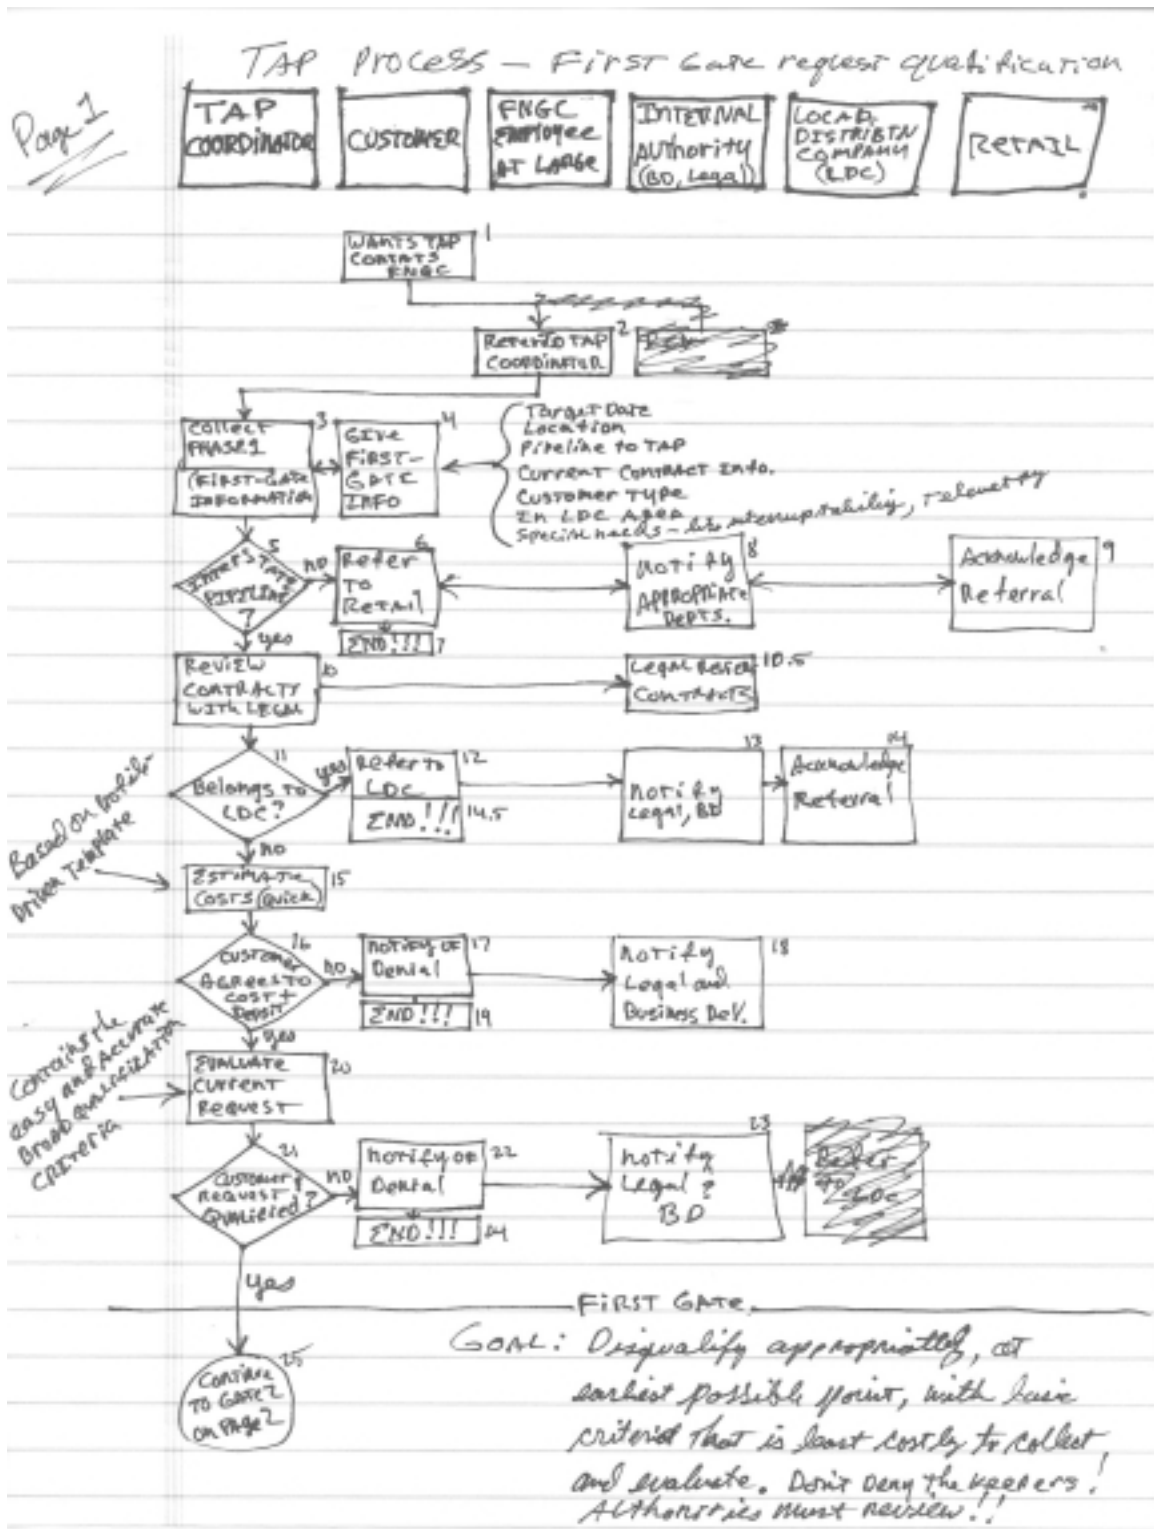 TAP Process - First Gate request qualification
Page 1
TAP
COORDINATOR
CUSTOMER
FNGC
EMPLOYEE
AT LARGE
INTERNAL
AUTHORITY
(BD, Legal)
LOCAL
DISTRIBTN
COMPANY
(LDC)
RETAIL
1
WANTS TAP
CONTATS
FNGC
2
Refer to TAP
COORDINATOR
3
Collect
PHASE 1
(FIRST-GATE
INFORMATION
4
GIVE
FIRST-
GATE
INFO
Target Date
Location
Pipeline to TAP
Current Contract Info.
Customer Type
In LDC Area
Special needs - like interruptability, Telemetry
5
INTERSTATE
PIPELINE
?
no
6
Refer
TO
RETAIL
8
Notify
APPROPRIATE
DEPTS.
9
Acknowledge
Referral
yes
END!!! 7
10
Review
CONTRACTY
WITH LEGAL
Legal Review 10.5
CONTRACTS
11
Belongs to
LDC?
yes
12
Refer to
LDC
END!!! 14.5
13
Notify
Legal, BD
14
Acknowledge
Referral
Based on Profile
Driven Template
no
ESTIMATE 15
COSTS (Quick)
16
CUSTOMER
AGREES TO
COST +
Deposit
no
NOTIFY OF 17
Denial
18
Notify
Legal and
Business Dev.
END!!! 19
yes
Contains the
easy and Accurate
Broad Qualification
CRITERIA
EVALUATE 20
CURRENT
Request
21
CUSTOMER
REQUEST
QUALIFIED?
no
Notify OF 22
Denial
23
Notify
Legal &
BD
Refer
to
LDC
END!!! 24
yes
FIRST GATE
25
CONTINUE
TO GATE 2
on PAGE 2
GOAL: Disqualify appropriately, at
earliest possible point, with basic
criteria that is least costly to collect
and evaluate. Don't Deny the keepers!
AUTHORITIES MUST REVIEW!!